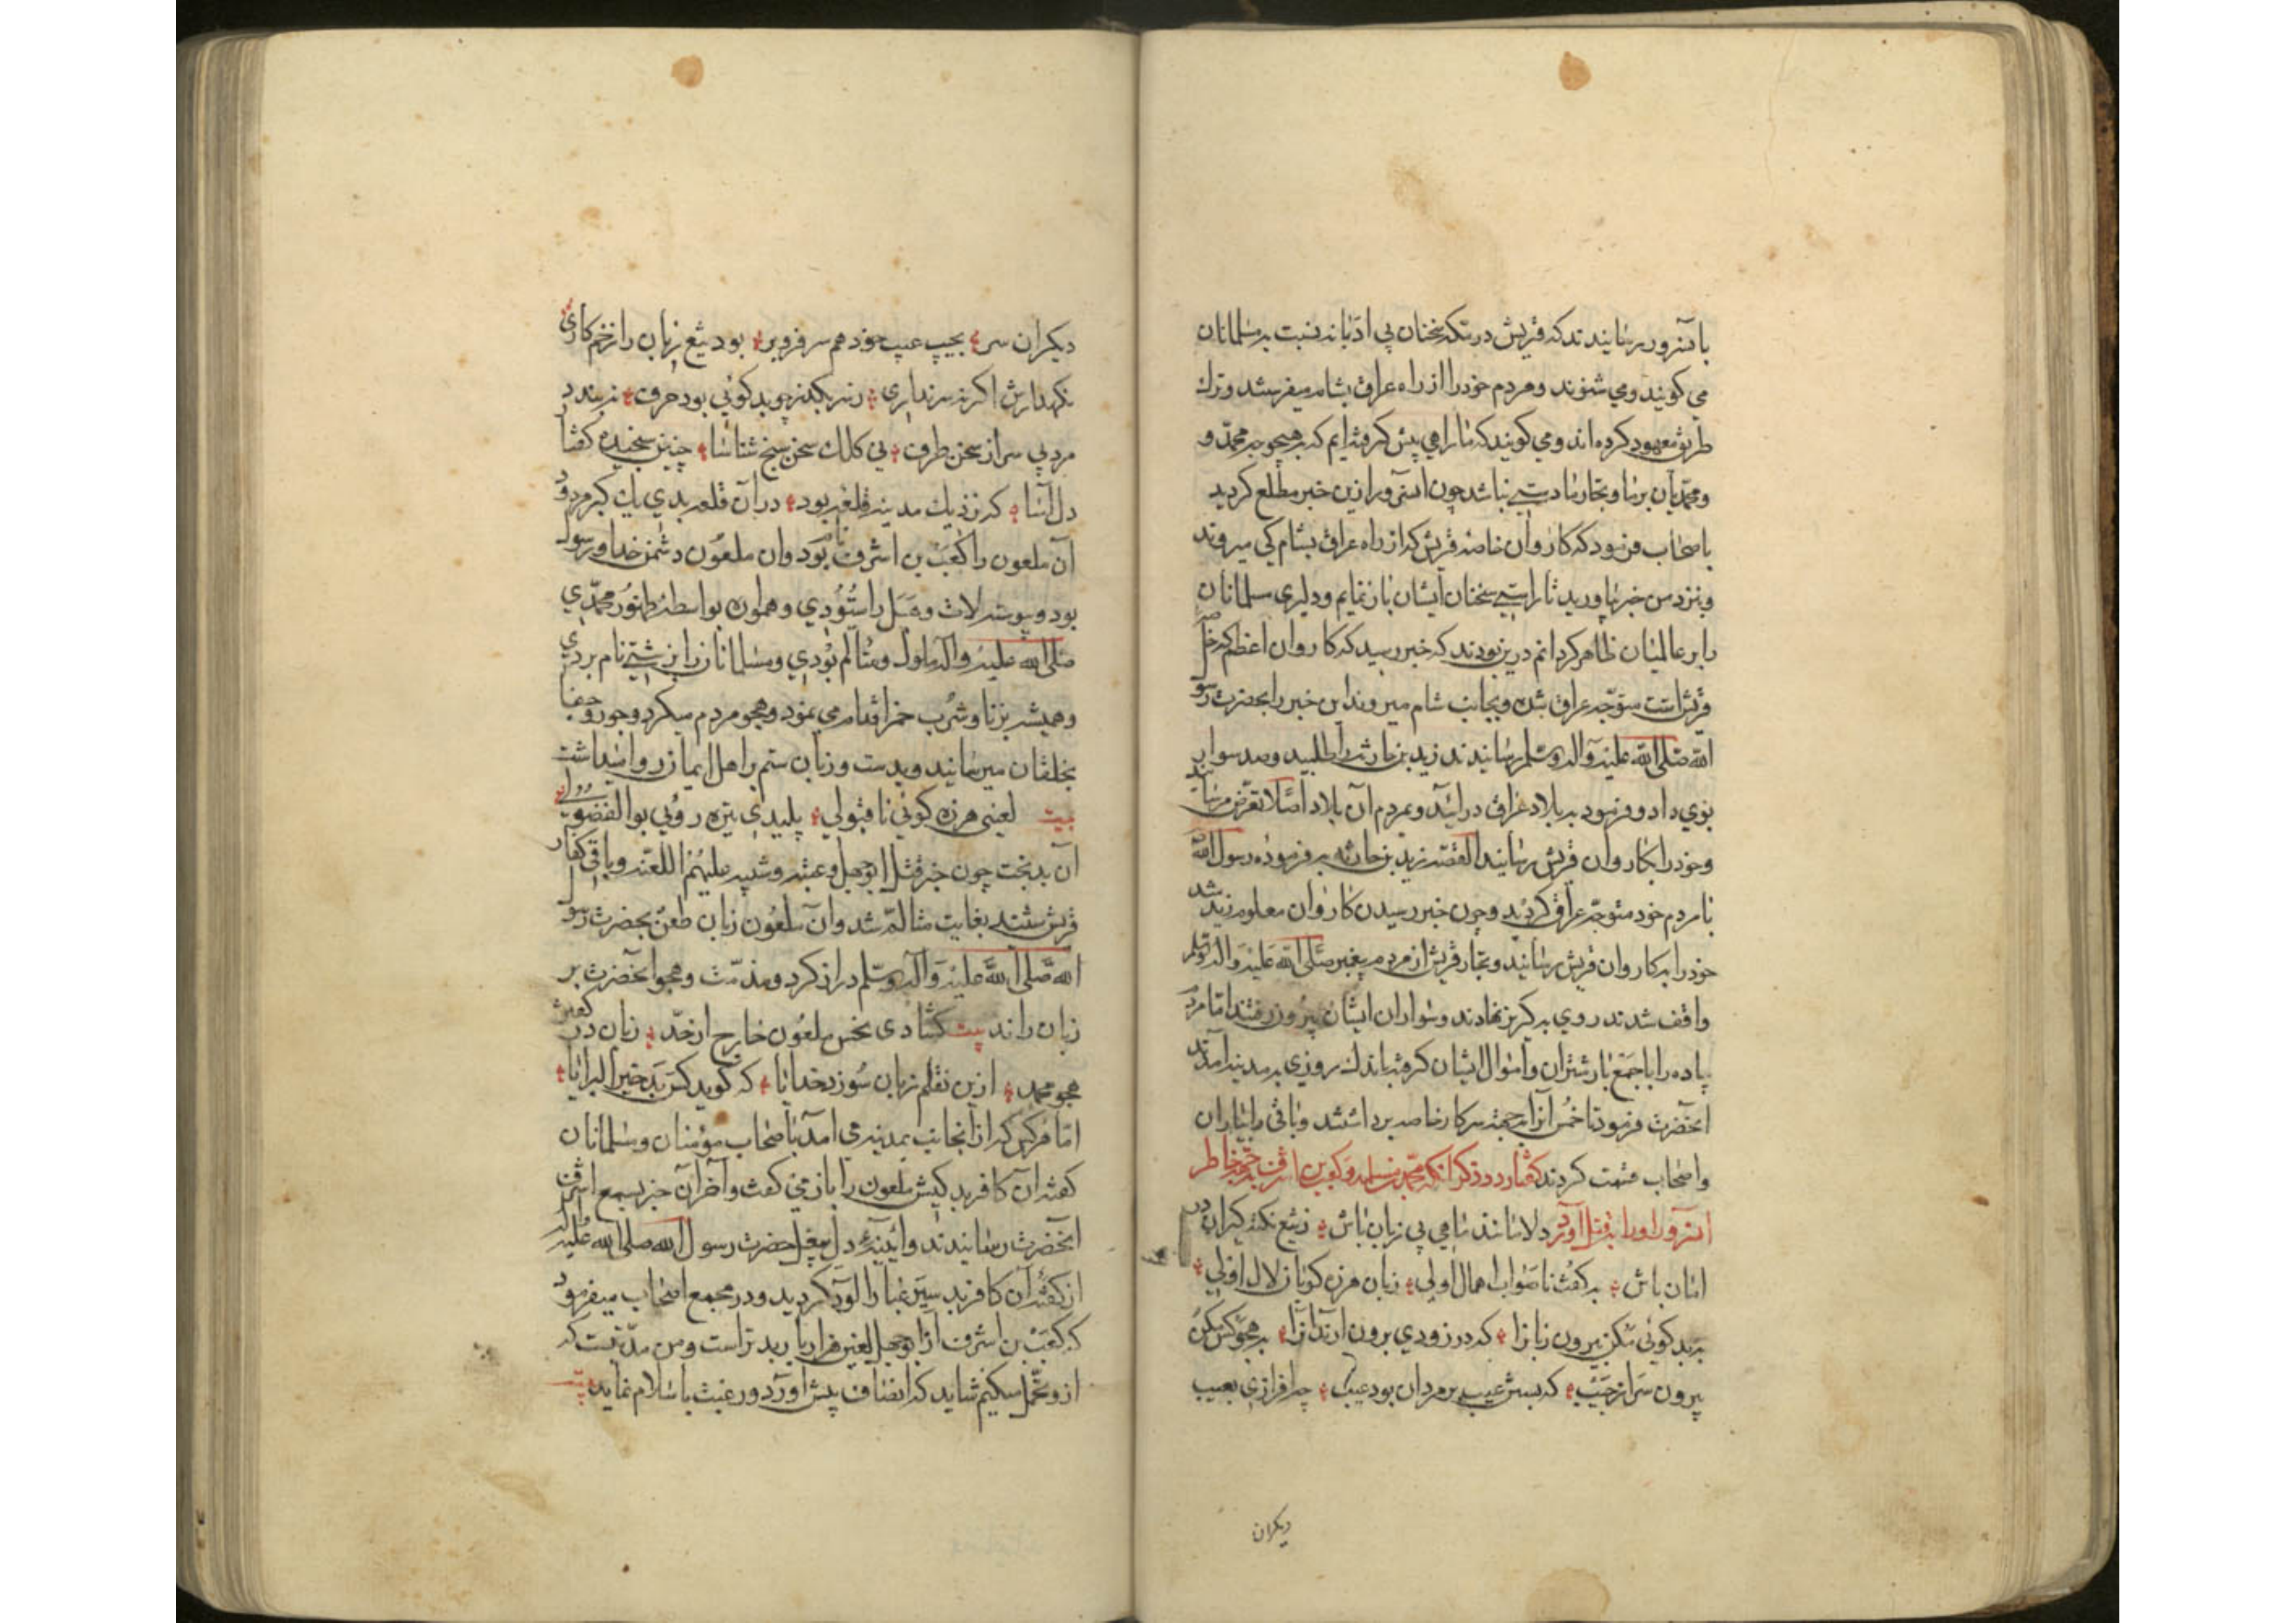 بآنسرور رسانیدند که قریش در مکه سخنان بی ادبانه نسبت بر مسلمانان
می کویند ومی شنوند ومردم خود را از راه عراق بشام میفرستند وترک
طریق معهود کرده اند ومی کویند که ما راهی پیش کرفته ایم که بر هیچ وجه محمد و
ومحمدیان بر ما وتجار ما دستی نباشد چون آنسرور ازین خبر مطلع کردید
باصحاب فرمود که کاروان خاصه قریش که از راه عراق بشام کی میروند
وبنزد من خبر بیاورید تا راستی سخنان ایشان باز نمایم ودلیری مسلمانان
را بر عالمیان ظاهر کردانم درین بودند که خبر رسید که کاروان اعظم که خاصه
قریش است متوجه عراق شده وبجانب شام میروند این خبر را بحضرت رسول
الله صلی الله علیه وآله وسلم رسانیدند زید بن حارثه را طلبید وصد سوار
بوی داد وفرمود به بلاد عراق درآیند وبمردم آن بلاد اصلا تعرض مرسانید
وخود را بکاروان قریش رسانید القصه زید بن حارثه بر فرموده رسول الله
با مردم خود متوجه عراق کردید وچون خبر رسیدن کاروان معلوم زید شد
خود را بر کاروان قریش رسانید وتجار قریش از مردم پیغمبر صلی الله علیه وآله وسلم
واقف شدند روی به کریز نهادند وسواران ایشان بیرون رفتند اما مردم
پیاده را با جمع بار شتران واموال ایشان کرفته باندک روزی بمدینه آمدند
آنحضرت فرمود تا خمس آنرا بجهة سرکار خاصه برداشتند وباقی را بیاران
واصحاب قسمت کردند کفتار در ذکر آنکه محمد بن مسلمه وکعب بن اشرف بجهة خاطر
آنسرور اورا بقتل آورد دلا مانند ماهی بی زبان باش ز تیغ نکته کیران در
امان باش به کفت ناصواب اهمال اولی زبان هرزه کویان لال اولی
به بد کوئی مکن بیرون زبانرا که در زودی برون آرند آنرا به هجو کس مکن
بیرون سر از جیب که بستن عیب بر مردان بود عیب چرا فرازی بعیب
دیکران
دیکران سر بجیب عیب خود هم سر فرو بر بود تیغ زبان را زخم کاری
نکهدارش اکر نه سر نداری کوئی بود حرف
مرد بی سر از سخن طرف بی کلک سخن سنج شناسا چنین سنجیده کفتار
دل آسا که نزدیک مدینه قلعه بود در آن قلعه بدی یک کبر مردود
آن ملعون را کعب بن اشرف نام بود وآن ملعون دشمن خدا ورسول
بود وپیوسته لات وهبل را ستودی وهمواره بواسطه ظهور محمدی
صلی الله علیه وآله ملول ومتألم بودی ومسلمانان را بزشتی نام بردی
وهمیشه بزنا وشرب خمر اقدام می نمود وهجو مردم میکرد وجور وجفا
بخلقان میرسانید وبدست وزبان ستم بر اهل ایمان روا میداشت
بیت لعینی هرزه کوئی ناقبولی پلیدی تیره روئی بوالفضولی
آن بدبخت چون خبر قتل ابوجهل وعتبه وشیبه علیهم اللعنه وباقی کفار
قریش شنید بغایت متألم شد وآن ملعون زبان طعن بحضرت رسول
الله صلی الله علیه وآله وسلم دراز کرد ومذمت وهجو آنحضرت بر
زبان راند بیت کشادی نحس ملعون خارج از حد زبان در کفتن
هجو محمد ازین نقلم زبان سوزد خدایا که کوید کس بد خیر البرایا
اما هر کس که از آنجانب بمدینه می آمد باصحاب مؤمنان ومسلمانان
کفته آن کافر بد کیش ملعون را باز می کفت وآخر آن خبر بسمع اشرف
آنحضرت رسانیدند وآیینه دل حضرت رسول الله صلی الله علیه وآله
از کفته آن کافر بد سیر غبار آلود کردید ودر مجمع اصحاب میفرمود
که کعب بن اشرف از ابوجهل لعین هزار بار بدتر است ومن مدتیست که
ازو تحمل میکنم شاید که انصاف پیش آورد ورغبت باسلام نماید بیت